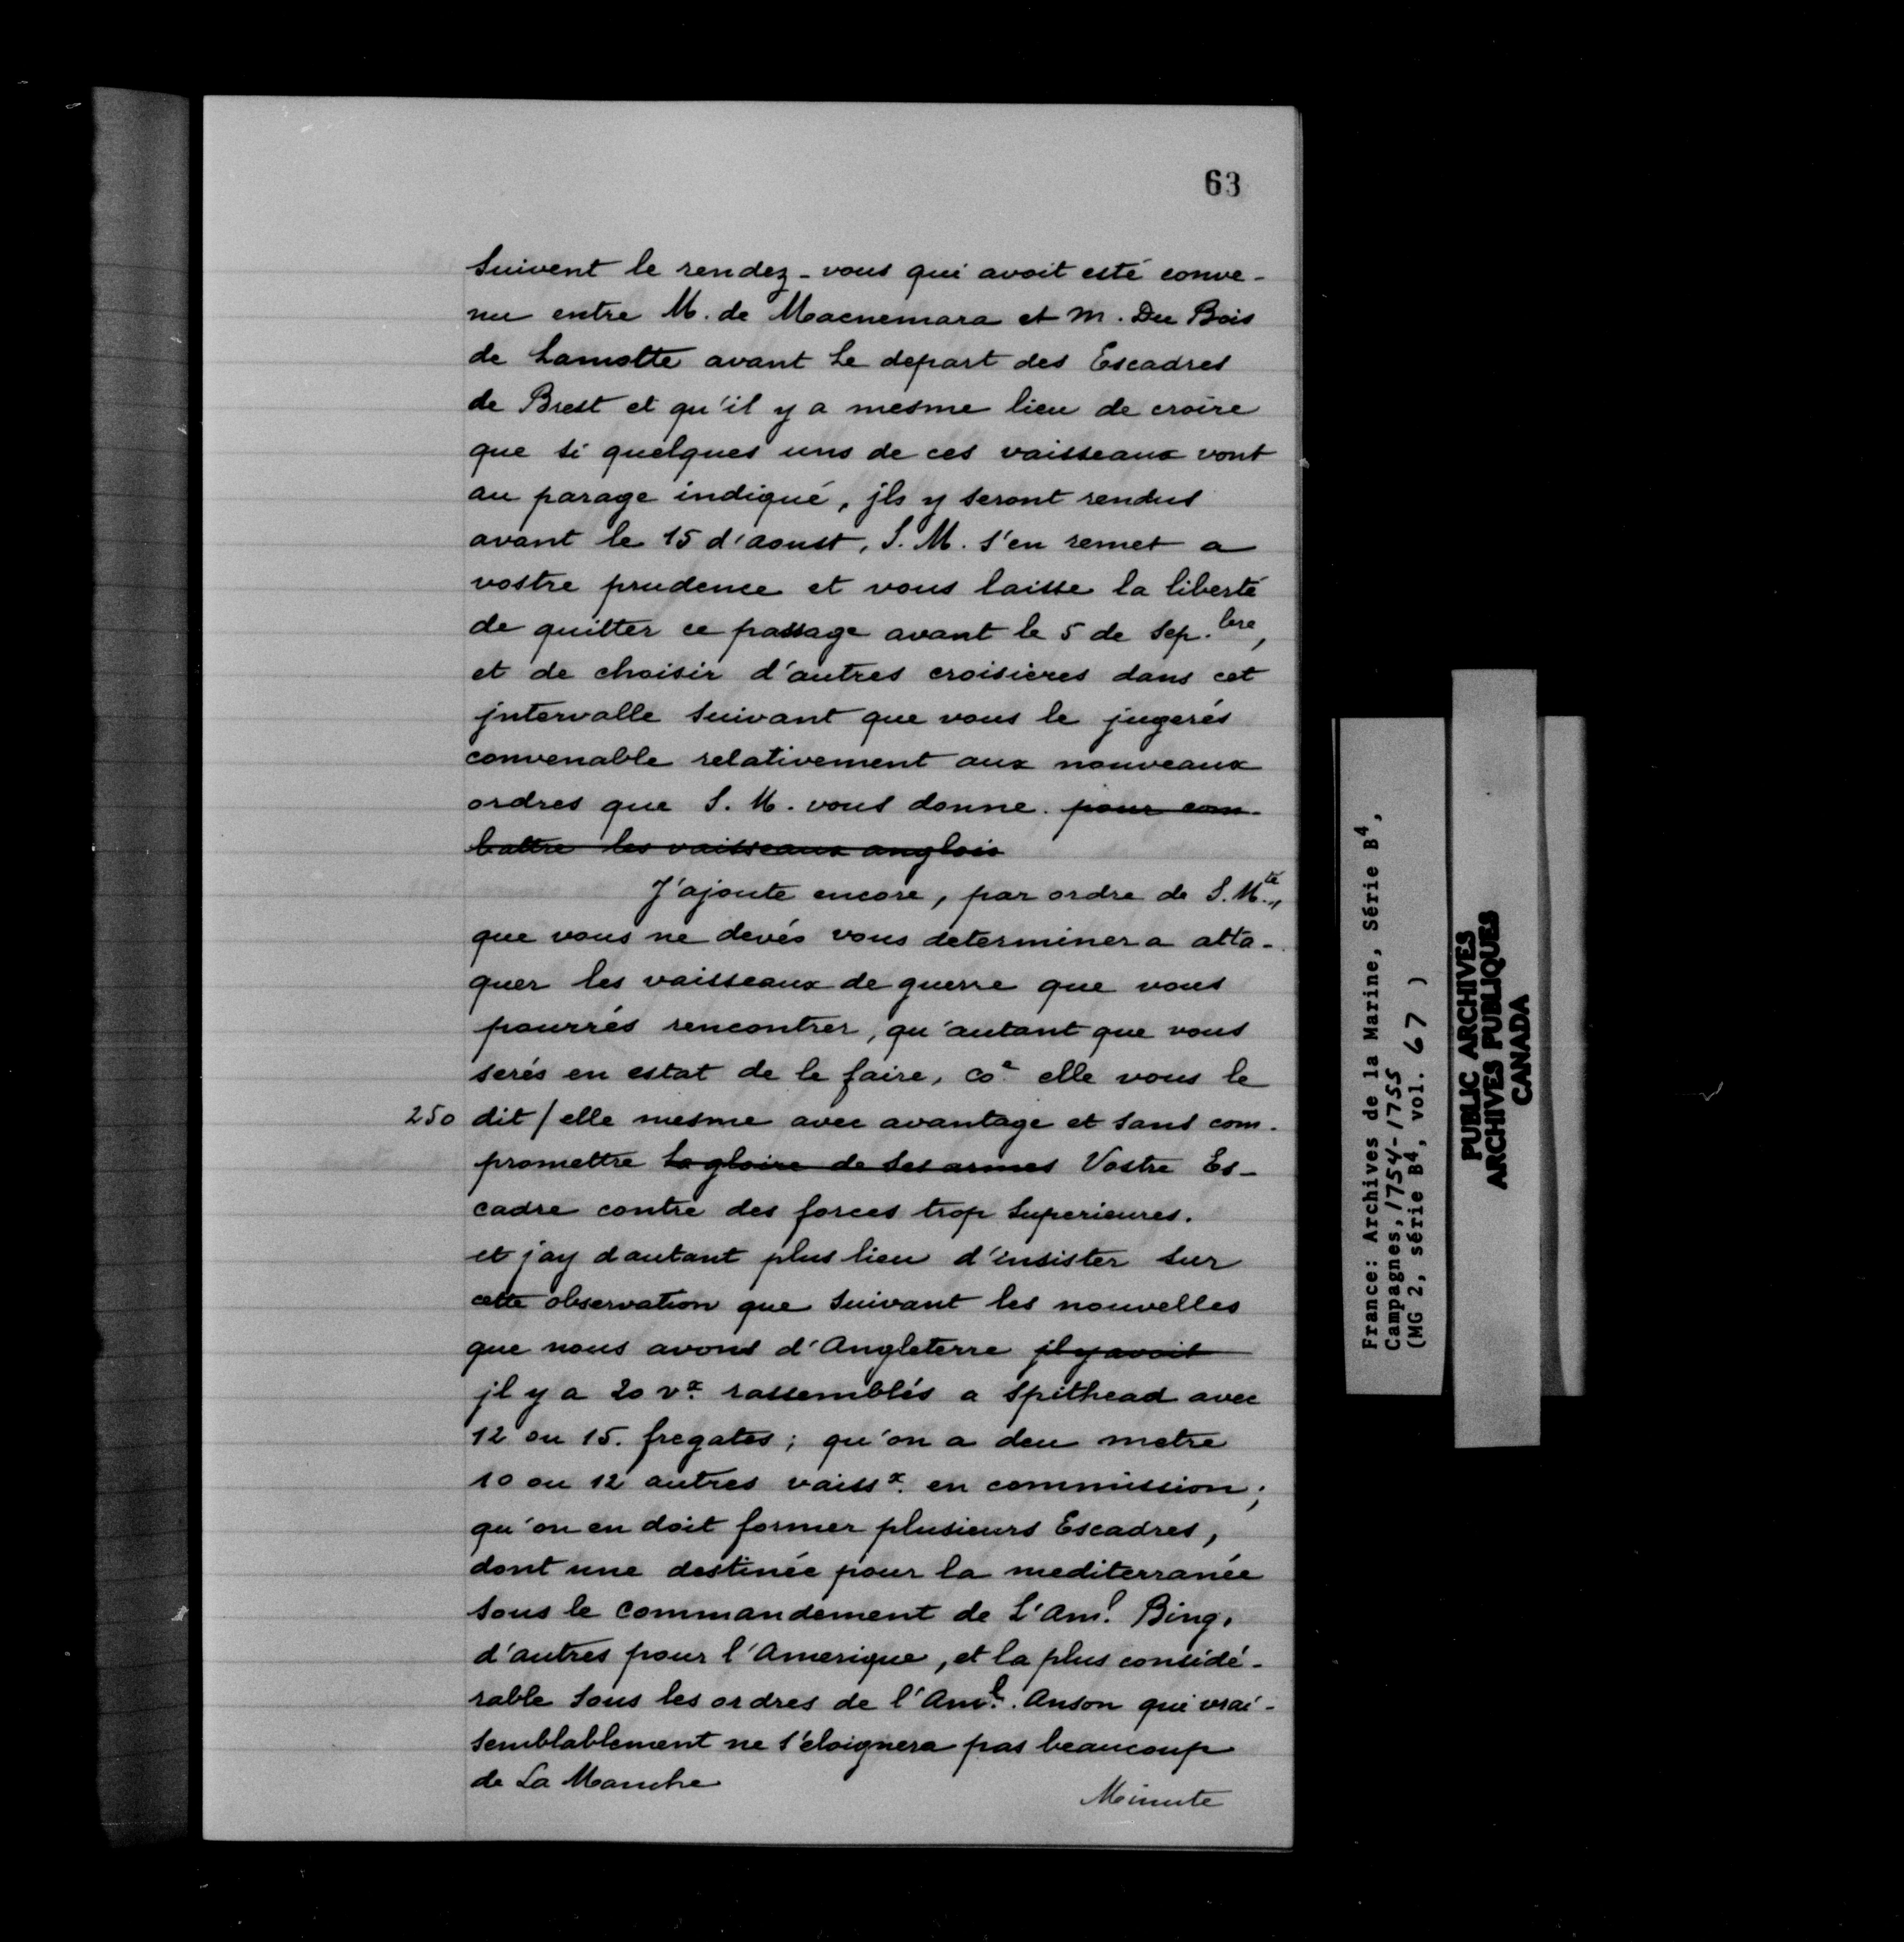 63
suivent le rendez-vous qui avoit esté conve-
nu entre M. de Macnemara et M. Du Bois
de Lamotte avant le depart des Escadres
de Brest et qu'il y a mesme lieu de croire
que si quelques uns de ces vaisseaux vont
au parage indiqué, jls y seront rendus
avant le 15 d'aoust, S. M. s'en remet a
vostre prudence et vous laisse la liberté
de quitter ce passage avant le 5 de Sep.bre,
et de choisir d'autres croisieres dans cet
jntervalle suivant que vous le jugerés
convenable relativement aux nouveaux
ordres que S. M. vous donne. pour com-
battre les vaisseaux anglois
J'ajoute encore, par ordre de S. M.té,
que vous ne devés vous determiner a atta-
quer les vaisseaux de guerre que vous
pourrés rencontrer, qu'autant que vous
serés en estat de le faire, coe elle vous le
250 dit / elle mesme avec avantage et sans com-
promettre la gloire de ses armes Vostre Es-
cadre contre des forces trop superieures.
et jay dautant plus lieu d'insister sur
cette observation que suivant les nouvelles
que nous avons d'Angleterre jl y avoit
jl y a 20 vx rassemblés a Spithead avec
12 ou 15. fregates; qu'on a deu metre
10 ou 12 autres vaissx en commission;
qu'on en doit former plusieurs Escadres,
dont une destinée pour la mediterranée
sous le commandement de L'Aml. Bing,
d'autres pour l'Amerique, et la plus considé-
rable sous les ordres de l'Aml. Anson qui vrai-
semblablement ne s'éloignera pas beaucoup
de La Manche
Minute
France: Archives de la Marine, Série B4,
Campagnes, 1754-1755
(MG 2, série B4, vol. 67 )
PUBLIC ARCHIVES
ARCHIVES PUBLIQUES
CANADA